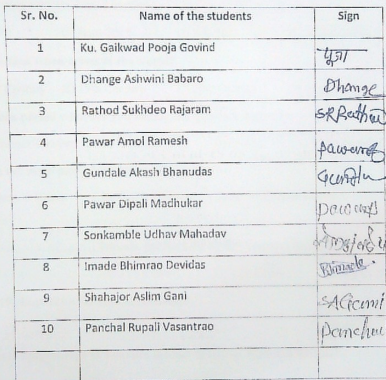 Sr. No. Name of the students Sign
1 Ku. Gaikwad Pooja Govind पूजा
2 Dhange Ashwini Babaro Dhange
3 Rathod Sukhdeo Rajaram SRRathod
4 Pawar Amol Ramesh pawar
5 Gundale Akash Bhanudas
6 Pawar Dipali Madhukar
7 Sonkamble Udhav Mahadav
8 Imade Bhimrao Devidas
9 Shahajor Aslim Gani SAGani
10 Panchal Rupali Vasantrao Panchal